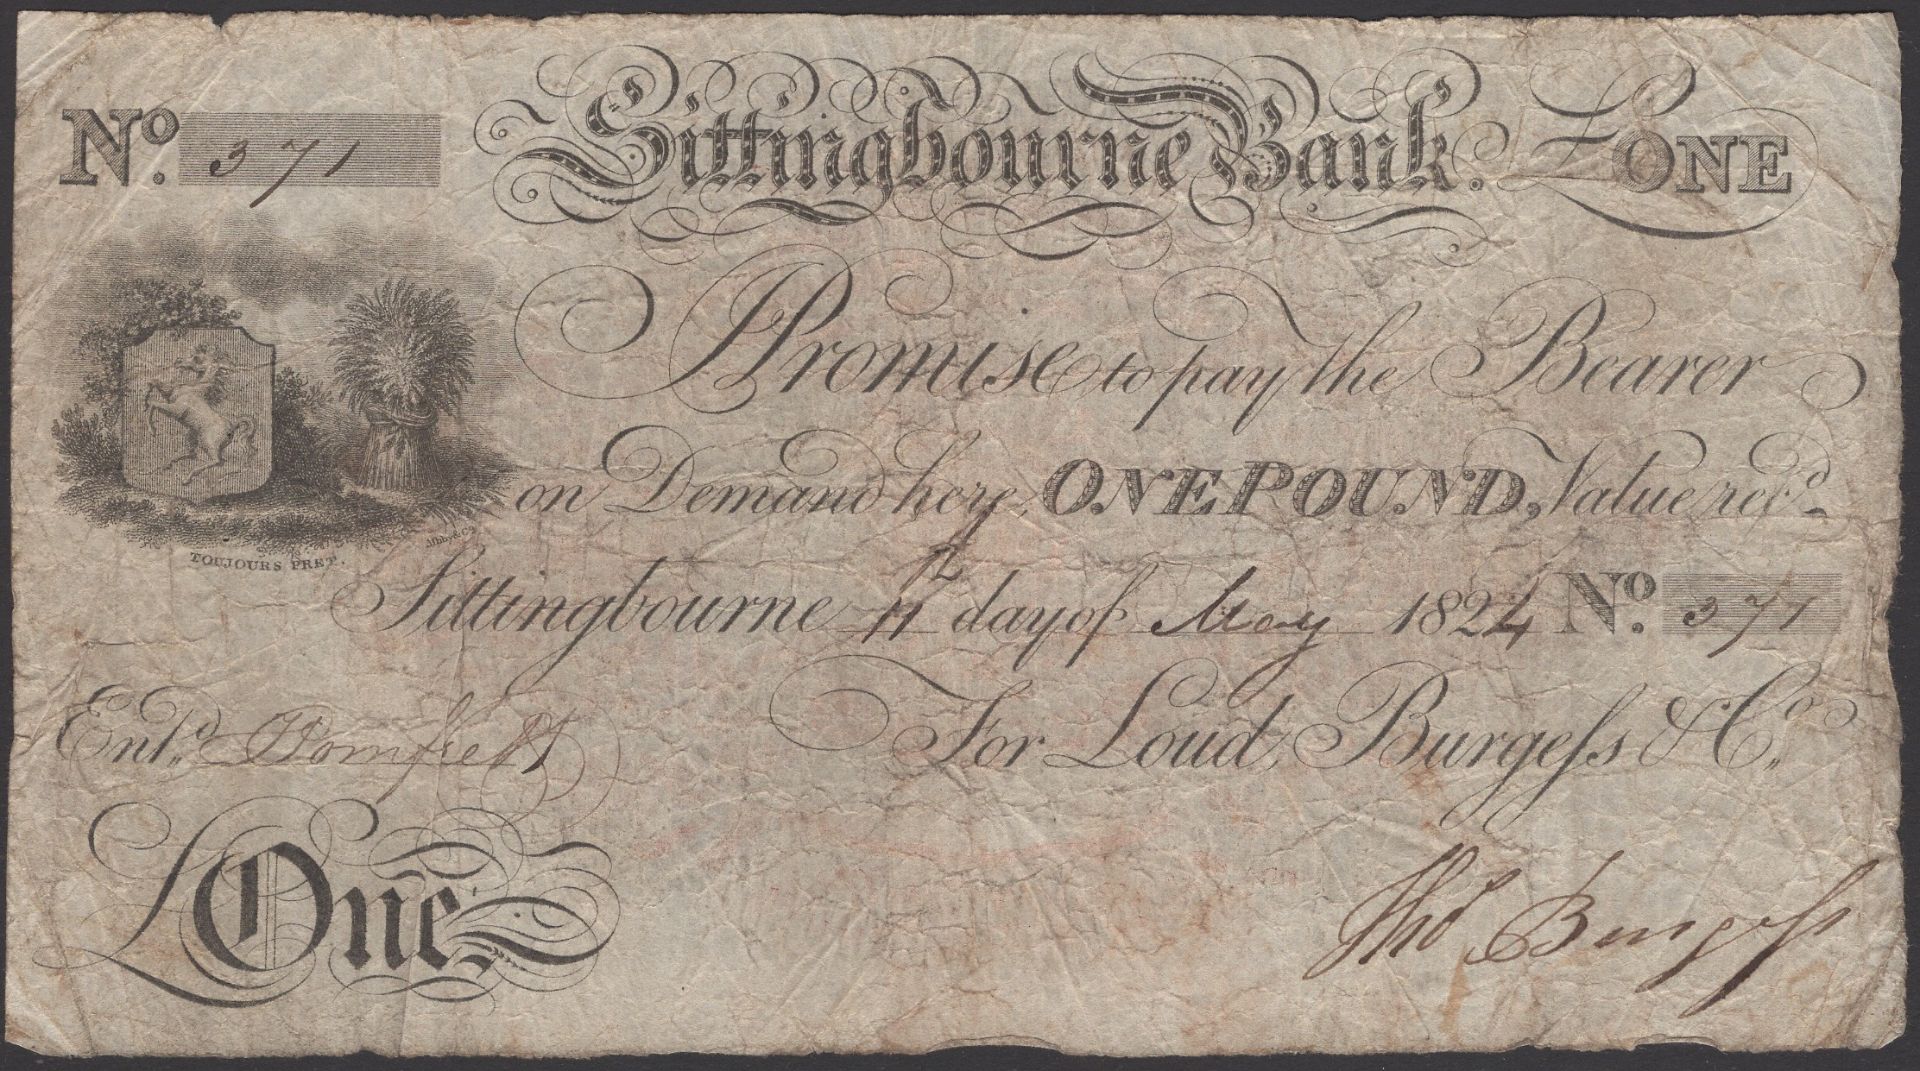 No. 371 Sittingbourne Bank. £ONE
I Promise to pay the Bearer
on Demand here, ONE POUND, Value recd.
TOUJOURS PRET.
Sittingbourne 11 day of May 1824 No. 371
Entd. For Loud, Burgess & Co.
£One
Thos Burgess